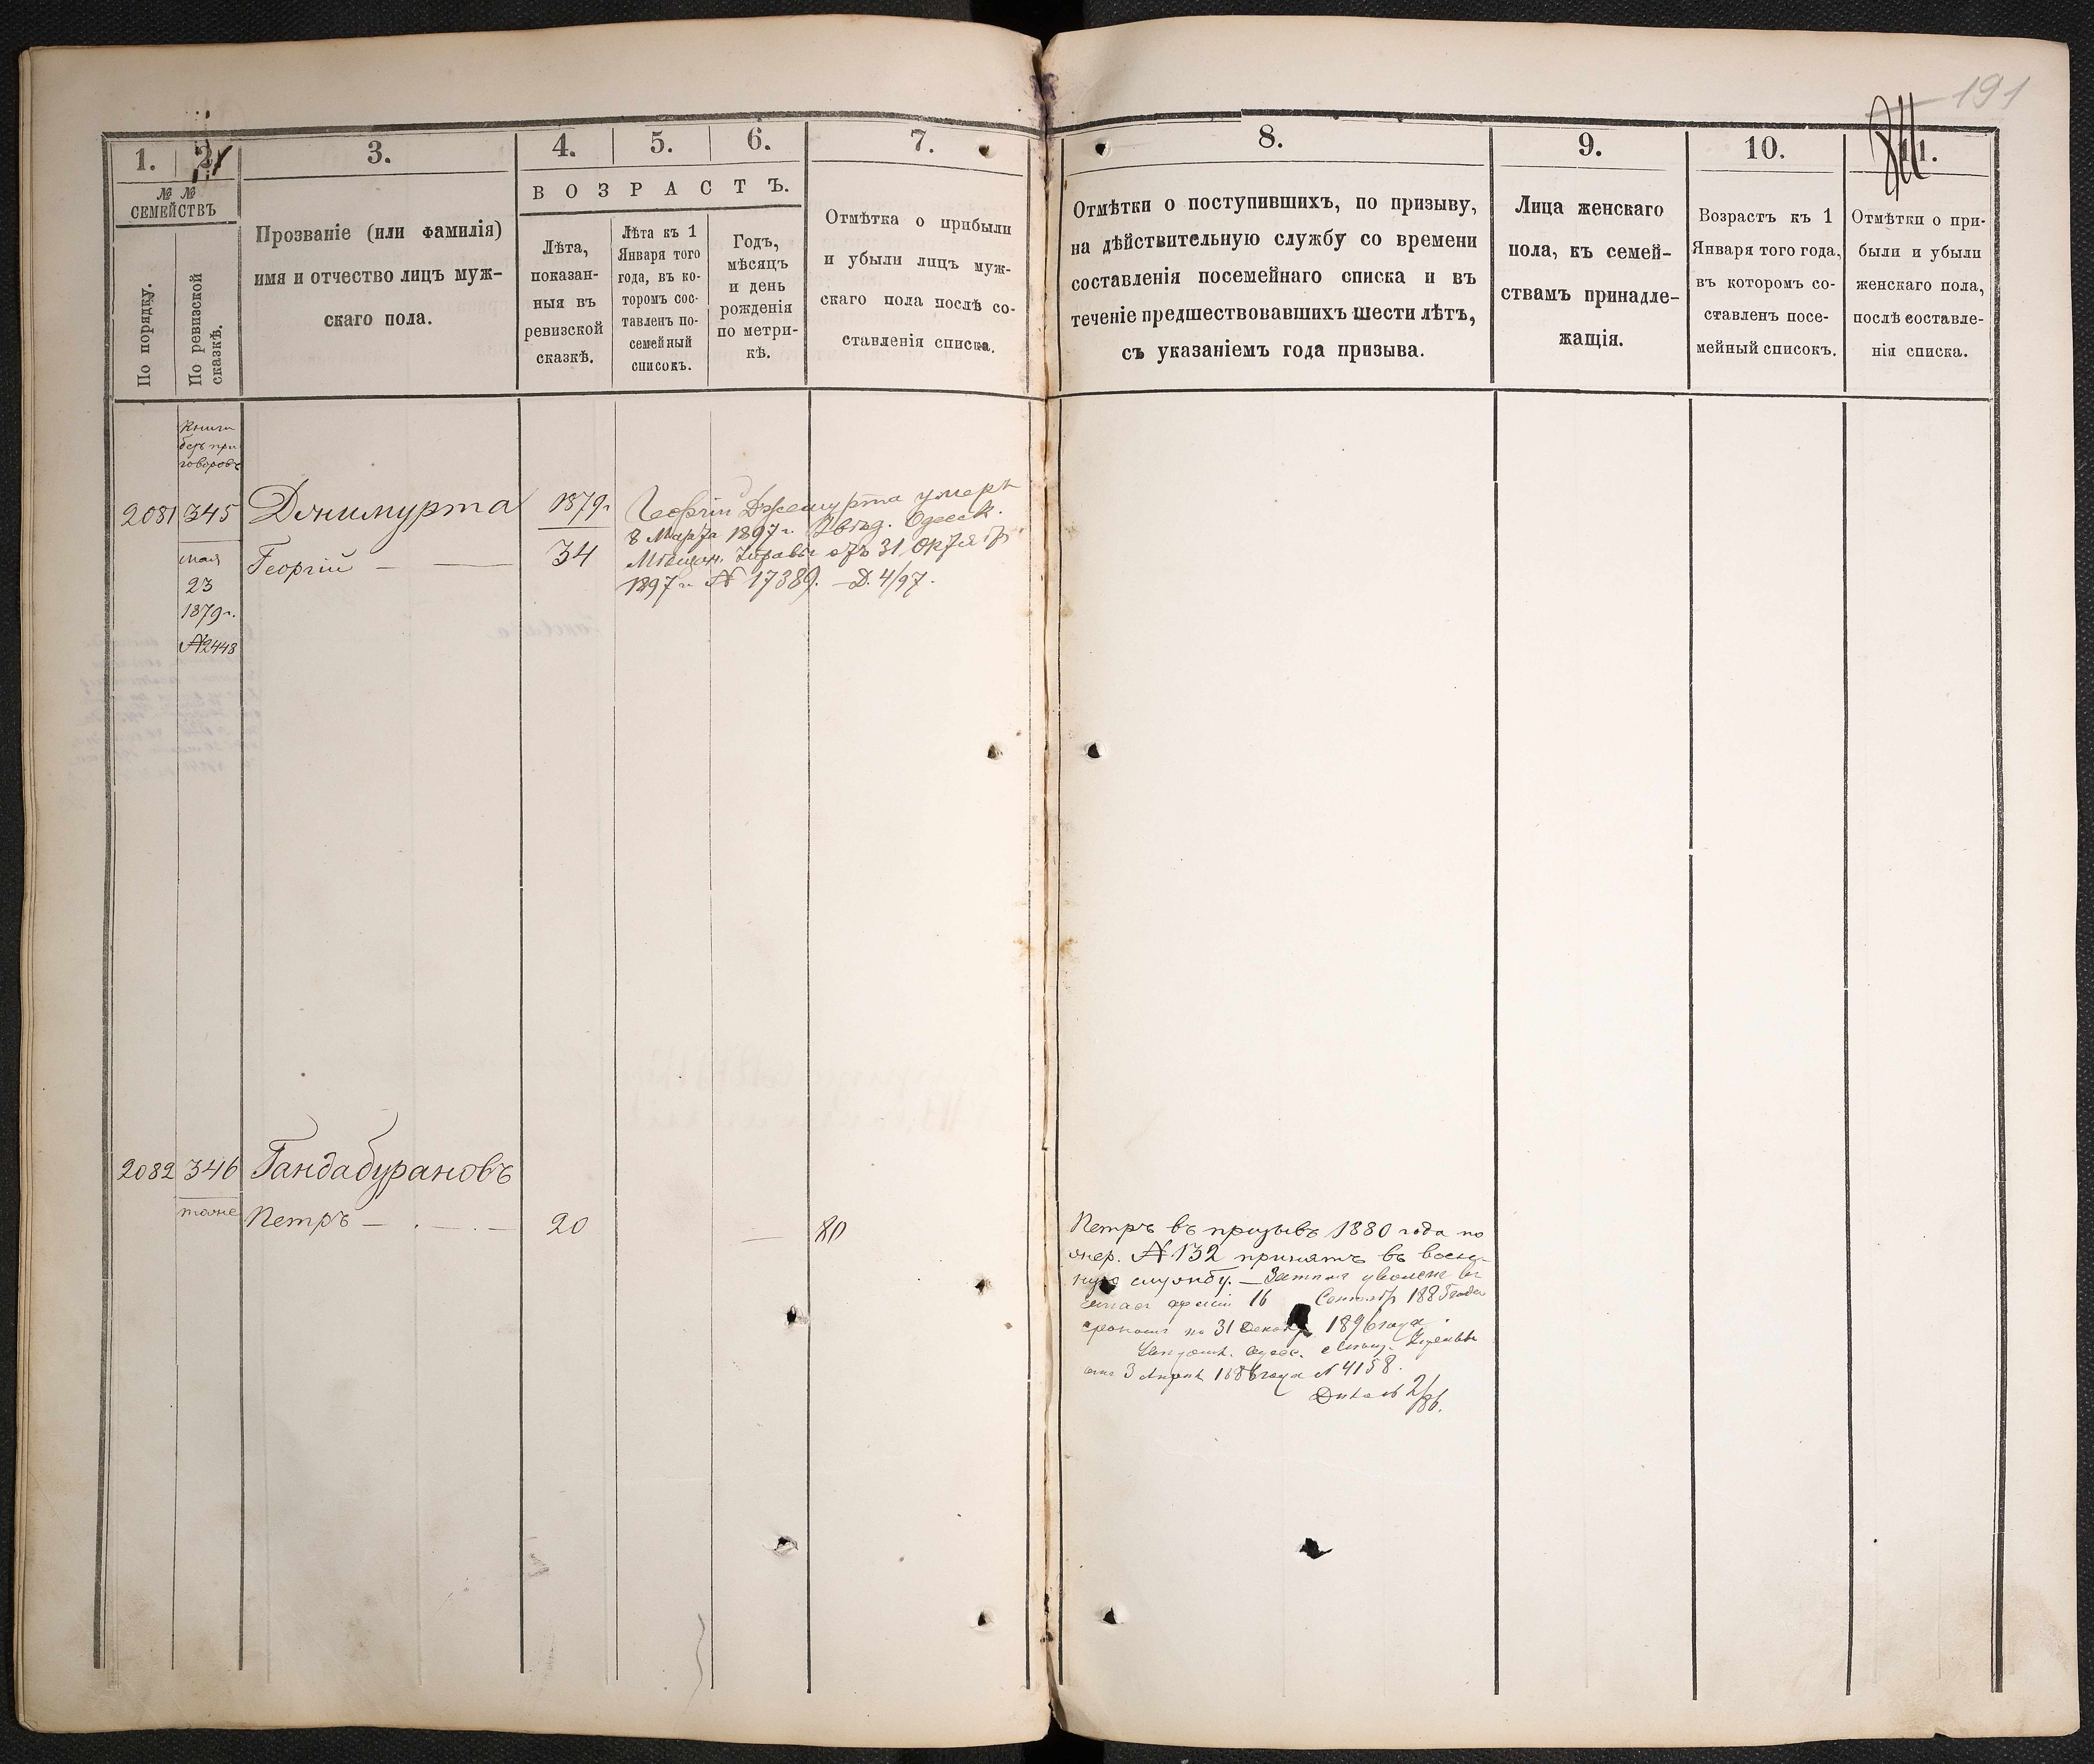 191
1.
2.
3.
4.
5.
6.
7.
8.
9.
10.
11.
№ №
СЕМЕЙСТВЪ
По порядку.
По ревизской
сказкѣ.
Прозваніе (или фамилія)
имя и отчество лицъ муж-
скаго пола.
ВОЗРАСТЪ.
Лѣта,
показан-
ныя въ
ревизской
сказкѣ.
Лѣта къ 1
Января того
года, въ ко-
торомъ сос-
тавленъ по-
семейный
списокъ.
Годъ,
мѣсяцъ
и день
рожденія
по метри-
кѣ.
Отмѣтка о прибыли
и убыли лицъ муж-
скаго пола послѣ со-
ставленія списка.
Отмѣтки о поступившихъ, по призыву,
на дѣйствительную службу со времени
составленія посемейнаго списка и въ
теченіе предшествовавшихъ шести лѣтъ,
съ указаніемъ года призыва.
Лица женскаго
пола, къ семей-
ствамъ принадле-
жащія.
Возрастъ къ 1
Января того года,
въ которомъ со-
ставленъ посе-
мейный списокъ.
Отмѣтки о при-
были и убыли
женскаго пола,
послѣ составле-
нія списка.
Книги
безъ при
говоровъ
2081
345
Джимурта
1879г
Георгій Джемурта умеръ
8 Марта 1897 г. Увѣд. Одесск.
Мѣщан. Управы отъ 31 Октяб
1897 г. № 17389. — Д. 4/97.
мая
23
1879 г.
№2448
Георгій
34
2082
346
Гандабурановъ
тоже
Петръ
20
80
Петръ въ призывъ 1880 года по
жер. № 132 принятъ въ воен-
ную службу. — Затѣмъ уволенъ въ
запас арміи 16 Сентябр 1885 года
срокомъ по 31 Декабр 1896 года
Одес. Мѣщ. Управы
отъ 3 Апрѣл 1886 года № 4158.
2/86.